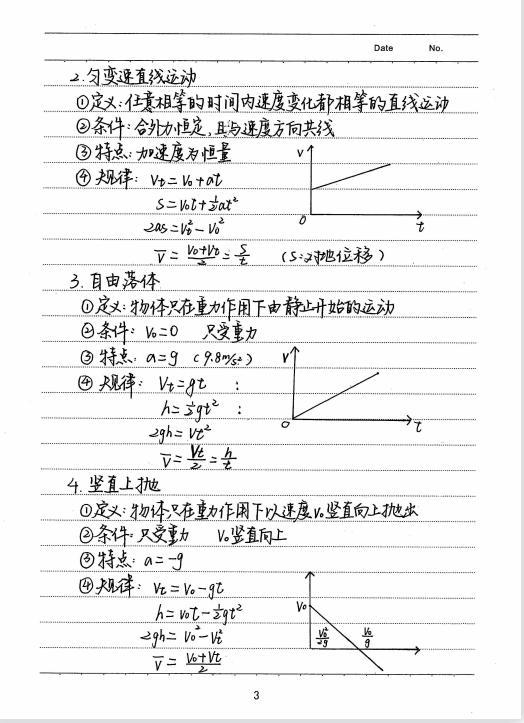 Date No.
2. 匀变速直线运动
①定义: 任意相等的时间内速度变化都相等的直线运动
②条件: 合外力恒定, 且与速度方向共线
③特点: 加速度为恒量
④规律: Vt=V₀+at
S=V₀t+½at²
2as=Vt²-V₀²
V̄=(V₀+Vt)/2=S/t (S:对地位移)
V
O
t
3. 自由落体
①定义: 物体只在重力作用下由静止开始的运动
②条件: V₀=0 只受重力
③特点: a=g (9.8m/s²)
④规律: Vt=gt :
h=½gt² :
2gh=Vt²
V̄=Vt/2=h/t
V
O
t
4. 竖直上抛
①定义: 物体只在重力作用下以速度V₀竖直向上抛出
②条件: 只受重力 V₀竖直向上
③特点: a=-g
④规律: Vt=V₀-gt
h=V₀t-½gt²
2gh=V₀²-Vt²
V̄=(V₀+Vt)/2
V₀
V₀²/2g
V₀/g
3